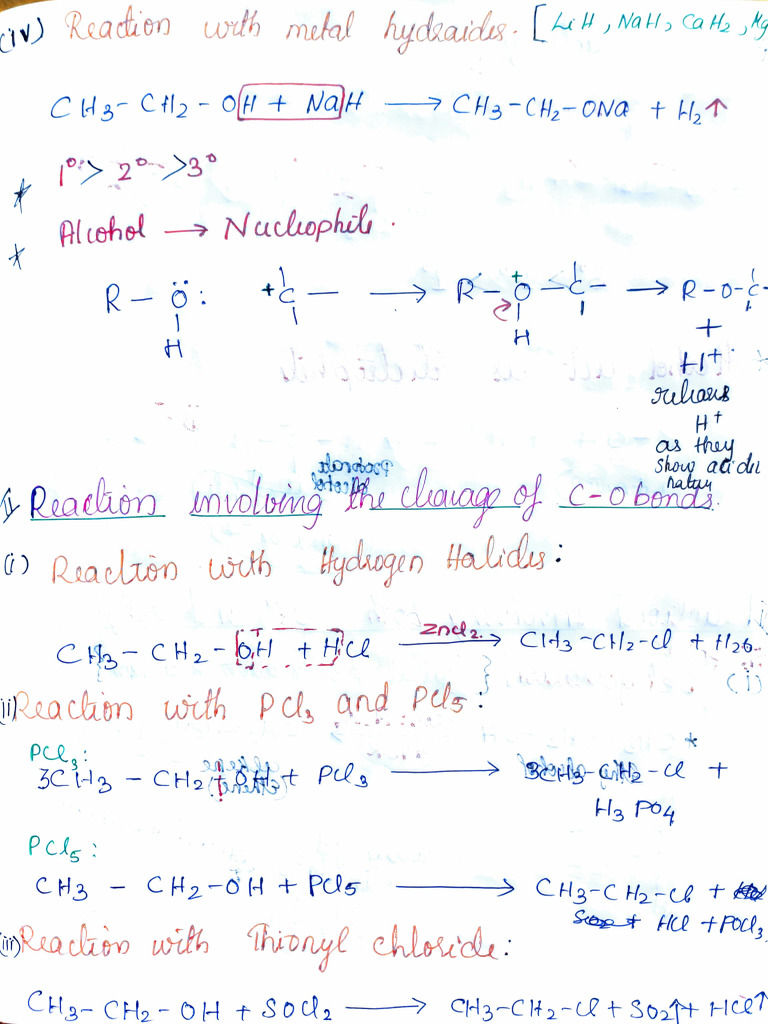 (iv) Reaction with metal hydraides. [LiH, NaH, CaH2, Mg
CH3-CH2-OH + NaH → CH3-CH2-ONa + H2↑
* 1°> 2° >3°
* Alcohol → Nucleophile.
R - Ö: +C - → R - O+ - C - → R-O-C-
H H
+
H+
H+
as they
show acidic
II Reaction involving the cleavage of C-O bonds.
(i) Reaction with Hydrogen Halides:
CH3 - CH2 - OH + HCl ZnCl2 → CH3-CH2-Cl + H2O.
(ii) Reaction with PCl3 and PCl5:
PCl3:
3CH3 - CH2 + OH + PCl3 → 3CH3-CH2-Cl +
H3PO4
PCl5:
CH3 - CH2-OH + PCl5 → CH3-CH2-Cl +
HCl + POCl3
(iii) Reaction with Thionyl chloride:
CH3-CH2-OH + SOCl2 → CH3-CH2-Cl + SO2↑ + HCl↑